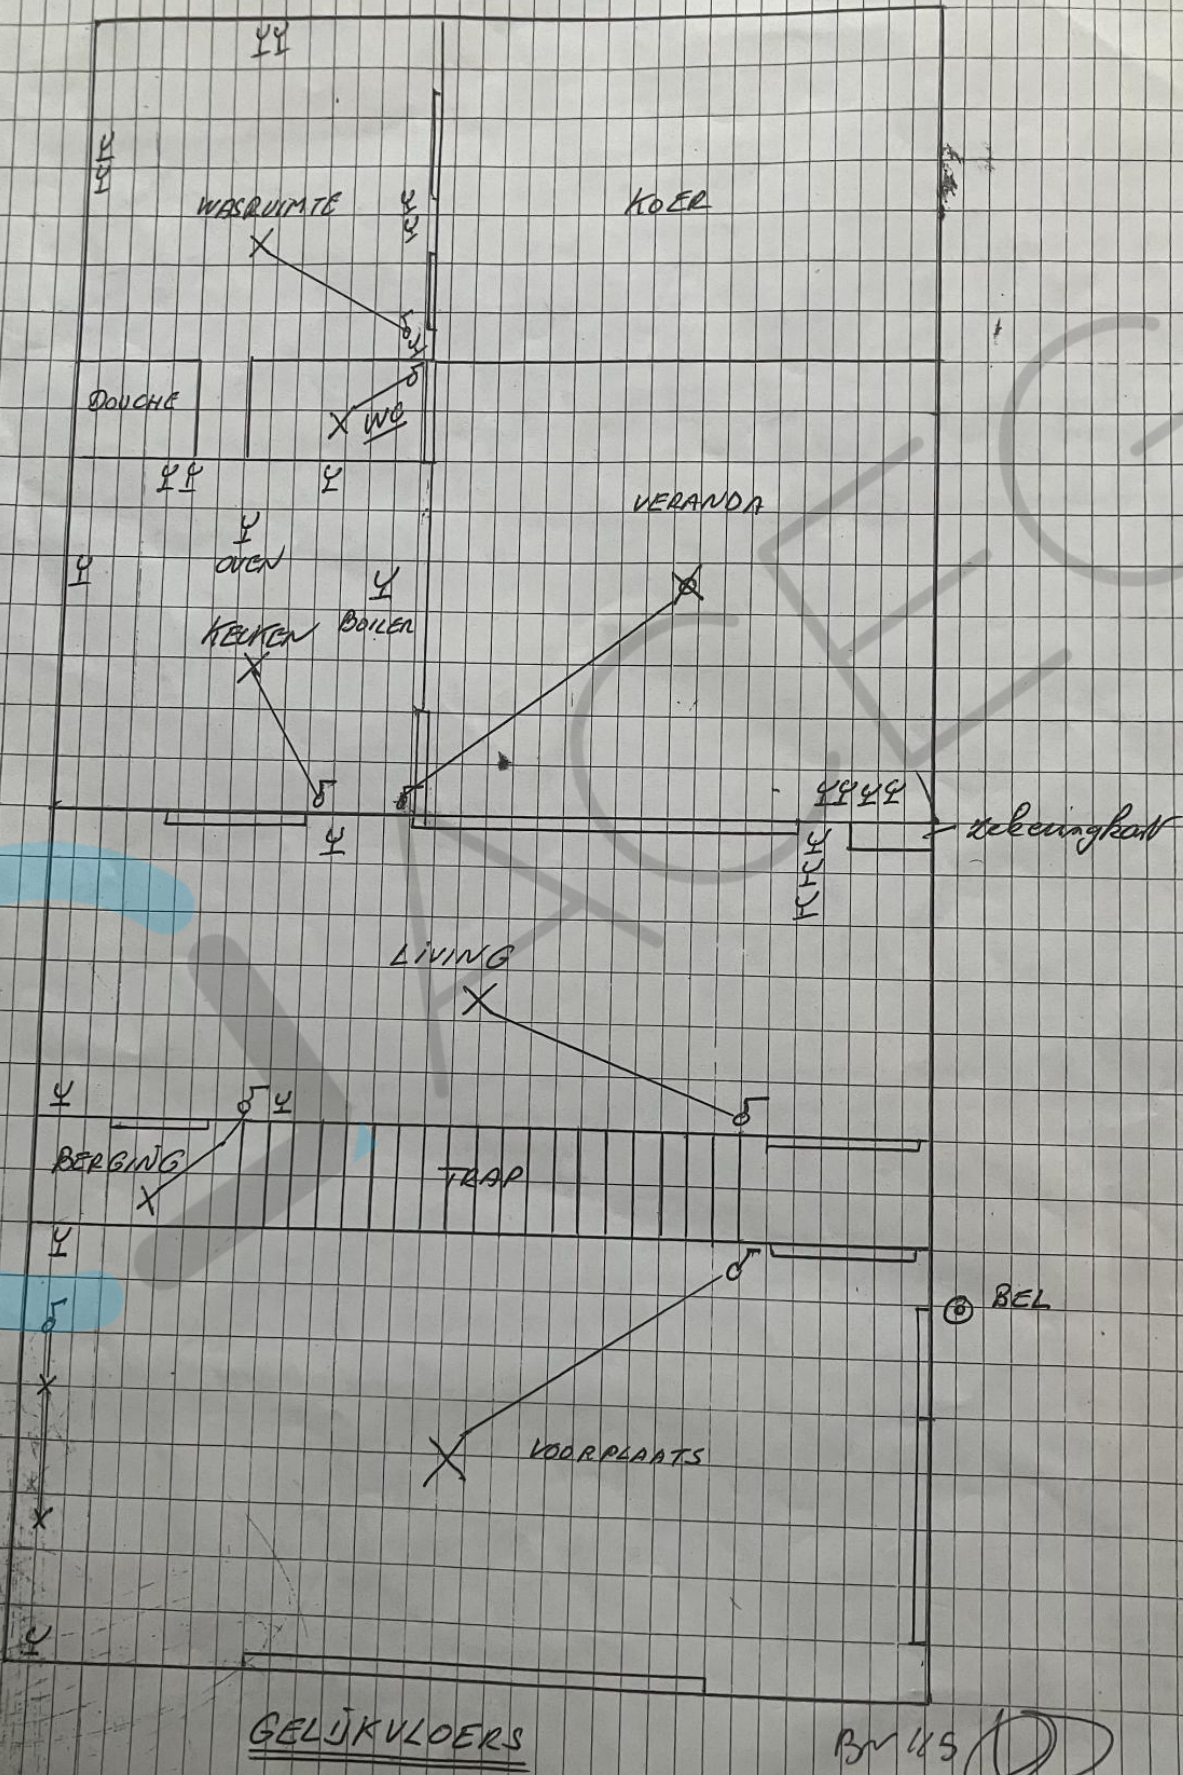 WASRUIMTE
KOER
DOUCHE
WC
VERANDA
OVEN
BOILER
KEUKEN
LIVING
BERGING
TRAP
BEL
VOORPLAATS
GELIJKVLOERS